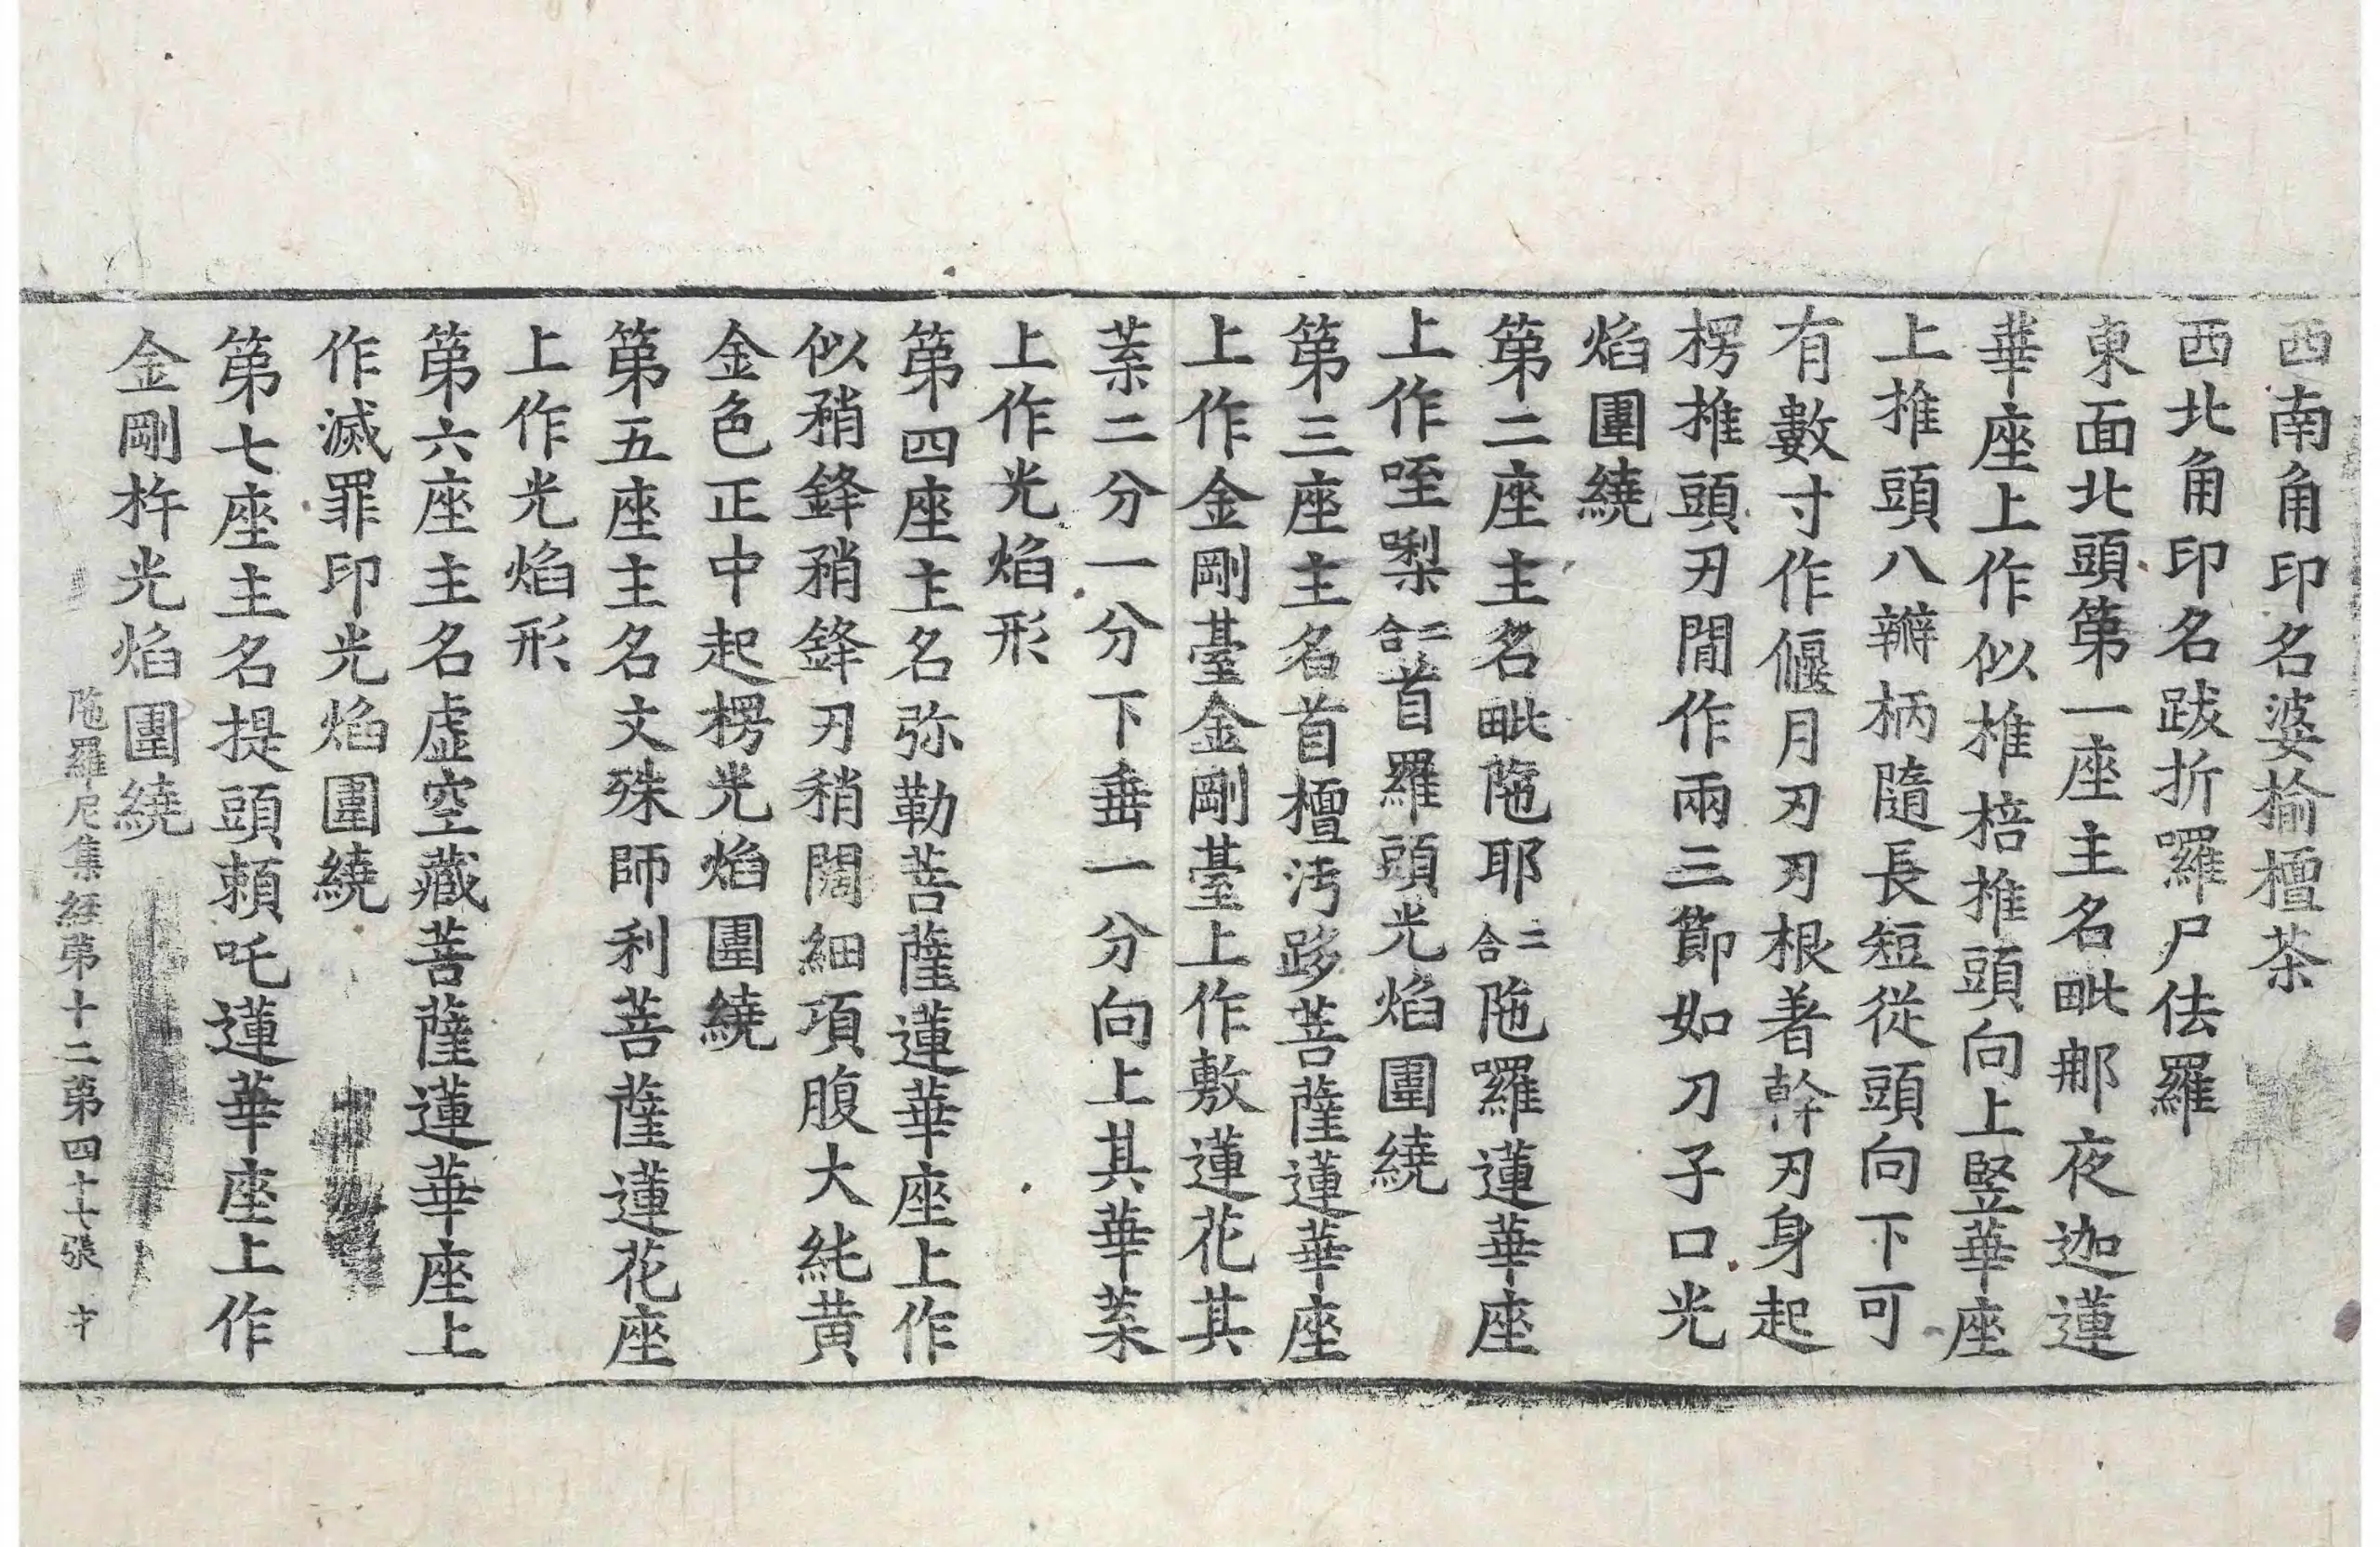 西南角印名婆揄檀茶
西北角印名跋折囉尸佉羅
東面北頭第一座主名毗那夜迦蓮
華座上作似椎棓椎頭向上竪華座
上椎頭八瓣柄隨長短從頭向下可
有數寸作偃月刃刃根著幹刃身起
楞椎頭刃閒作兩三節如刀子口光
焰圍繞
第二座主名毗陁耶二合陁囉蓮華座
上作咥㗚二合首羅頭光焰圍繞
第三座主名首檀沔跢菩薩蓮華座
上作金剛臺金剛臺上作敷蓮花其
蘂二分一分下垂一分向上其華蘂
上作光焰形
第四座主名弥勒菩薩蓮華座上作
似矟鋒矟鋒刃稍闊細項腹大純黃
金色正中起楞光焰圍繞
第五座主名文殊師利菩薩蓮花座
上作光焰形
第六座主名虛空藏菩薩蓮華座上
作滅罪印光焰圍繞
第七座主名提頭賴吒蓮華座上作
金剛杵光焰圍繞
陁羅尼集經第十二第四十七張 才